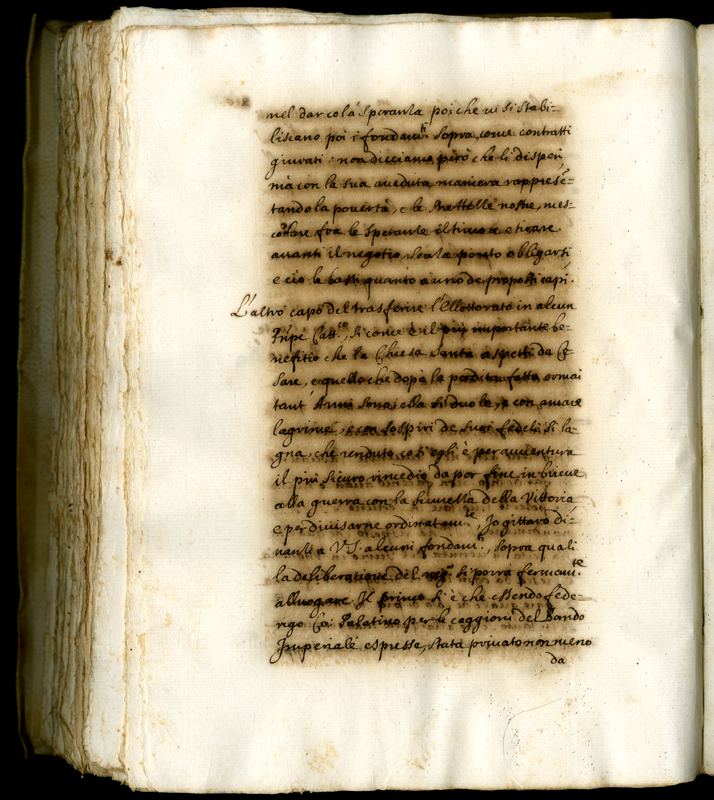 nel dar colà speranza poi che vi si stabi-
liscano poi i fondam.ti sopra come contratti
giurati: non dicciamo però che li disperi
mà con la sua aveduta maniera rappresē-
tando la povertà, e le nostre, mes-
colare fra le speranze il timore e tirare
avanti il negotio, senza punto obligarsi
e ciò la basti quanto a uno de proposti capi.
L'altro capo del trasferire l'Elettorato in alcun
Pñpe Catt.co, si come è il più importante be-
nefitio che la Chiesa Santa aspetti da Ce-
sare, e quello che dopò la perdita fatta ormai
tant' Anni sono, ella si duole, e con amare
lagrime, e con sospiri de suoi fedeli si la-
gna, che renduto così egli è per avventura
il più sicuro rimedio da por fine in breve
alla guerra con la sicurezza della Vittoria
e per divisarne ordinatam.te, Io gittarò di-
nanzi a V.S. alcuni fondam.ti, sopra quali
la deliberatione del neg.o si porrà fermam.te
alluogare. Il primo si è che essendo Fede-
rigo Co: Palatino per le caggioni del Bando
Imperiale espresse, stata privato non meno
da